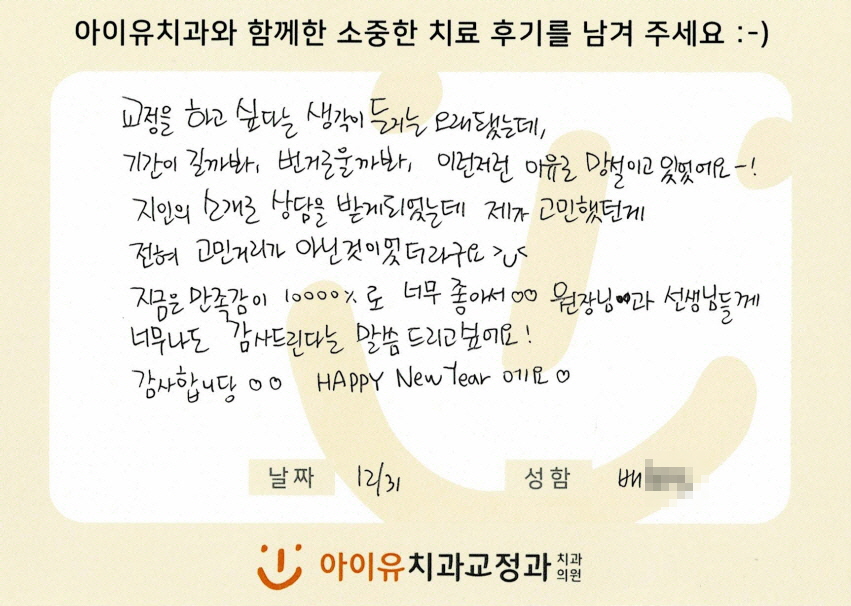 아이유치과와 함께한 소중한 치료 후기를 남겨 주세요 :-)
교정을 하고 싶다는 생각이 든지는 오래됐는데,
기간이 길까봐, 번거로울까봐, 이런저런 이유로 망설이고 있었어요~!
지인의 소개로 상담을 받게되었는데 제가 고민했던게
전혀 고민거리가 아닌것이었더라구요 >ں<
지금은 만족감이 10000%로 너무 좋아서♡♡ 원장님과 선생님들께
너무나도 감사드린다는 말씀 드리고싶어요!
감사합니당 ♡♡ HAPPY New Year 에요♡
날짜 12/31 성함 배
아이유치과교정과 치과
의원